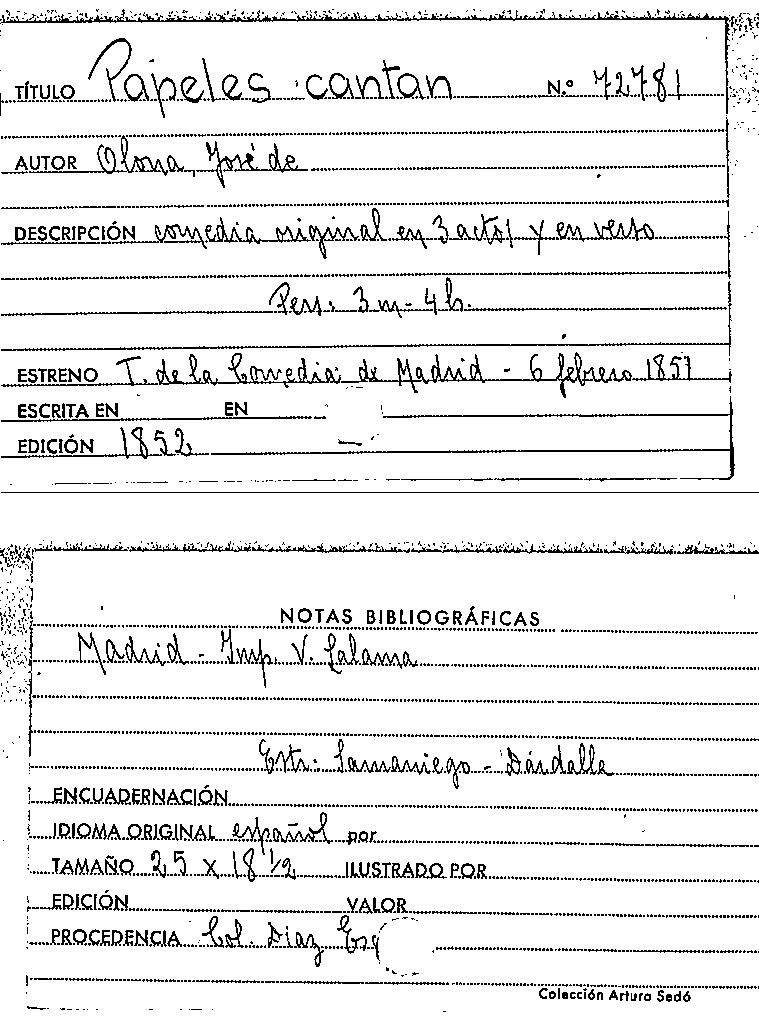 TÍTULO Papeles cantan N.º 72781
AUTOR Olona, José de
DESCRIPCIÓN comedia original en 3 actos y en verso
Pers: 3 m - 4 h.
ESTRENO T. de la Comedia de Madrid - 6 febrero 1851
ESCRITA EN EN
EDICIÓN 1852 —
NOTAS BIBLIOGRÁFICAS
Madrid - Imp. V. Lalama
Estr: Samaniego - Dardalla
ENCUADERNACIÓN
IDIOMA ORIGINAL español por
TAMAÑO 25 x 18 1/2 ILUSTRADO POR
EDICIÓN VALOR
PROCEDENCIA Col. Diaz Esq
Colección Arturo Sedó